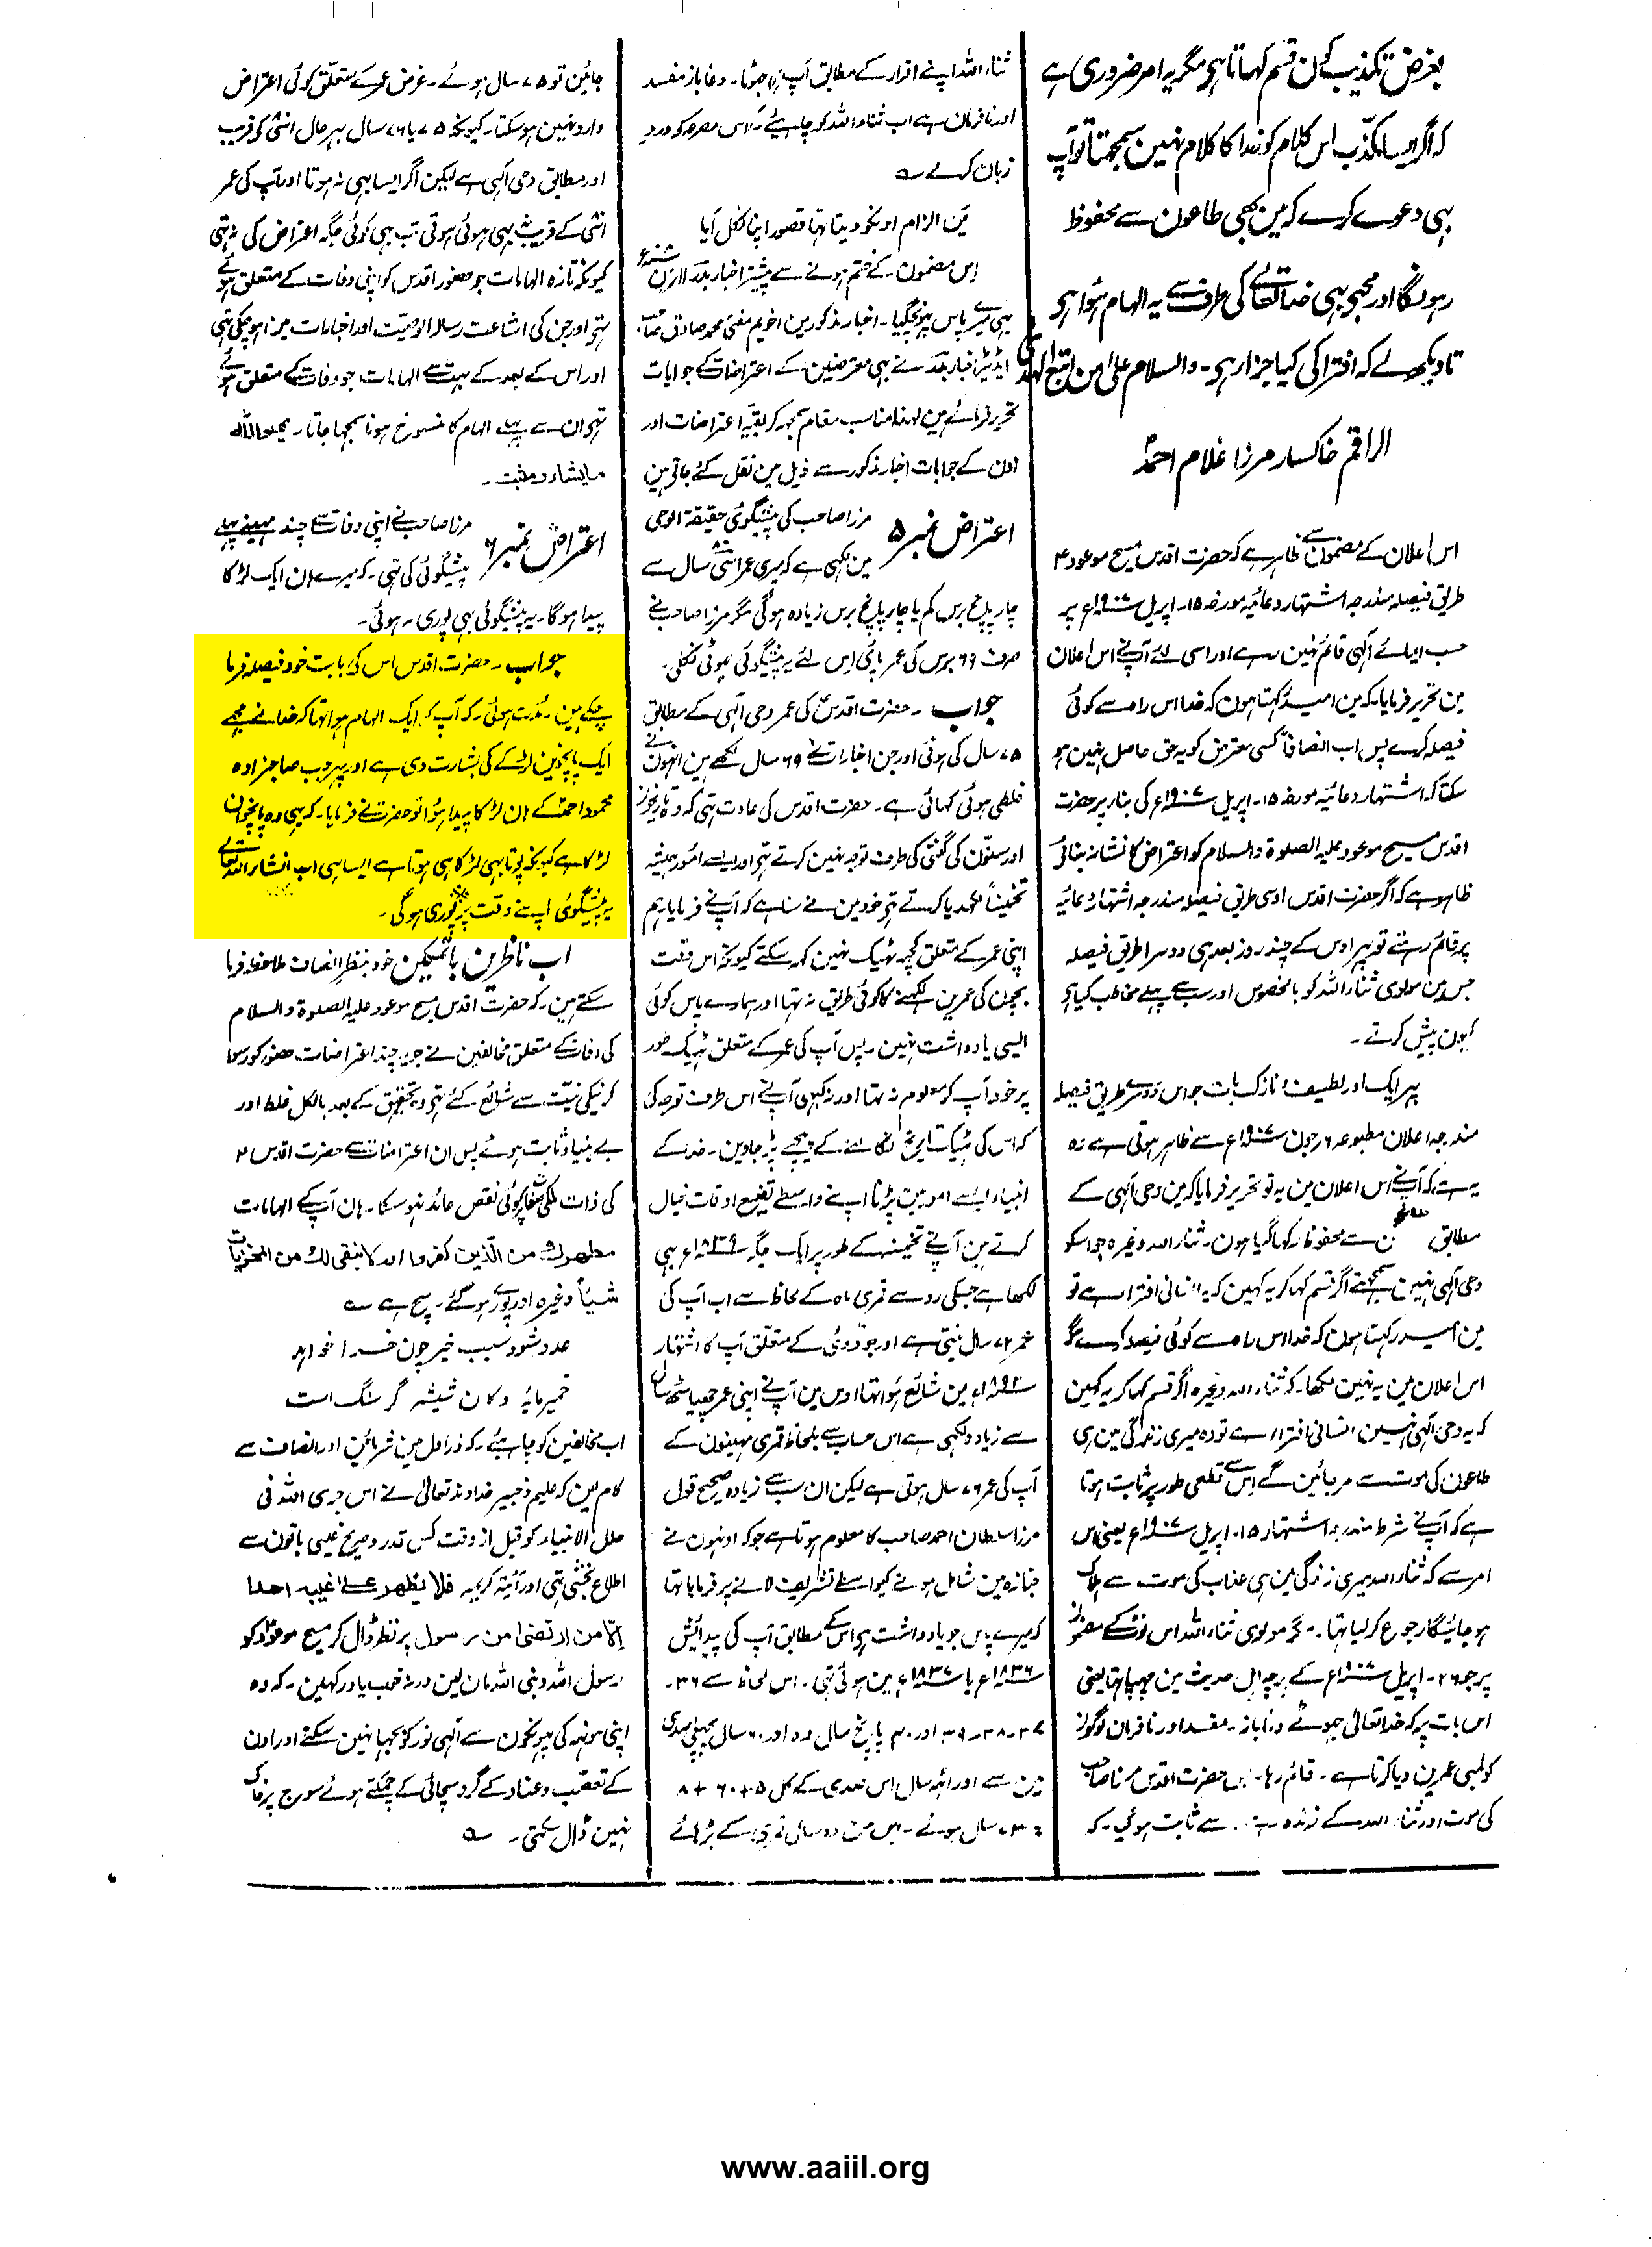 بغرض تکذیب کون قسم کہاتا ہی مگر یہ امر ضروری ہے
کہ اگر ایسا مکذّب اس کلام کو خدا کا کلام نہین سمجہتا تو آپ
بہی دعوے کرے کہ مین بھی طاعون سے محفوظ
رہونگا اور مجہو بہی خدا تعالےٰ کی طرف سے یہ الہام ہوُا ہی
تا دیکھ لے کہ افترا کی کیا جزا رہی۔ والسلام علیٰ من اتبع الہدیٰ
الراقم خاکسار مرزا غلام احمدؐ
اس اعلان کے مضمون سے ظاہر ہے کہ حضرت اقدس مسیح موعود ؑ
طریق فیصلہ مندرجہ اشتہار دعائیہ مورخہ ۱۵۔ اپریل ۱۹۰۷ء پر
حسب ایمائے آلہی قائم نہین رہے اور اسی لئے آپنے اس اعلان
مین تحریر فرمایا۔ کہ مین امید رکہتا ہون کہ خدا اس راہ سے کوئی
فیصلہ کرے پس اب انصافاً کسی معترض کو یہ حق حاصل نہین ہو
سکتا کہ اشتہار دعائیہ مورخہ ۱۵۔ اپریل ۱۹۰۷ء کی بنا پر حضرت
اقدس مسیح موعود علیہ الصلوۃ والسلام کو اعتراض کا نشانہ بنائی
ظاہر ہے کہ اگر حضرت اقدس اوسی طریق فیصلہ مندرجہ اشتہار دعائیہ
پر قائم رہتے تو پہر اوس کے چند روز بعد ہی دوسرا طریق فیصلہ
جس مین مولوی ثناء اللہ کو بالخصوص اور سب سے پہلے مخاطب کیا ہی
کیون پیش کرتے۔
پہر ایک اور لطیف و نازک بات جو اس دوسرے طریق فیصلہ
مندرجہ اعلان مطبوعہ ۶ جون ۱۹۰۷ء سے ظاہر ہوتی ہے وہ
یہ ہے کہ آپنے اس اعلان مین یہ تو تحریر فرمایا کہ مین وحی آلہی کے
مطابق ن سے محفوظ رکہا گیا ہون۔ ثناء اللہ وغیرہ جو اسکو
وحی آلہی نہین سمجہتے اگر قسم کہا کر یہ کہین کہ یہ انسانی افترا ہے تو
مین امید رکہتا ہون کہ خدا اس راہ سے کوئی فیصلہ کرے مگر
اس اعلان مین یہ نہین لکہا۔ کہ ثناء اللہ وغیرہ اگر قسم کہا کر یہ کہین
کہ یہ وحی الٰہی نہین انسانی افترا ہے تو وہ میری زندگی مین ہی
طاعون کی موت سے مر جائین گے اس سے قطعی طور پر ثابت ہوتا
ہے کہ آپنے شرط مندرجہ اشتہار ۱۵۔ اپریل ۱۹۰۷ء یعنی اس
امر سے کہ ثناء اللہ میری زندگی مین ہی عذاب کی موت سے ہلاک
ہو جائیگا رجوع کر لیا تہا۔ مگر مولوی ثناء اللہ اس نوٹ کے مضمون
پر جو ۲۶۔ اپریل ۱۹۰۷ء کے پرچہ اہل حدیث مین چہپا تہا یعنی
اس بات پر کہ خدا تعالیٰ جہوٹے دغا باز۔ مفسد اور نافرمان لوگون
کو لمبی عمرین دیا کرتا ہے۔ قائم رہا۔ پس حضرت اقدس مرزا صاحب
کی موت اور ثناء اللہ کے زندہ رہنے سے ثابت ہو گیا۔ کہ
ثناء اللہ اپنے اقرار کے مطابق آپ ہی جہوٹا۔ دغا باز مفسد
اور نافرمان ہے اب ثناء اللہ کو چاہئے کہ اس مصرعہ کو ورد
زبان کرلے ؎
مَین الزام اونکو دیتا تہا قصور اپنا نکل آیا
اس مضمون کے ختم ہونے سے پیشتر اخبار بدر ۱۱ جون ۱۹۰۸ء
بہی میرے پاس پہونچگیا۔ اخبار مذکور مین اخویم مفتی محمد صادق صاحب
ایڈیٹر اخبار بدر نے بہی معترضین کے اعتراضات کے جوابات
تحریر فرمائے ہین لہذا مناسب مقام سمجہ کر بقیہ اعتراضات اور
اون کے جوابات اخبار مذکور سے ذیل مین نقل کئے جاتی ہین
اعتراض نمبر ۵ مرزا صاحب کی پیشگوئی حقیقۃ الوحی
مین لکہی ہے کہ میری عمر اسّی ۸۰ سال سے
چار پانچ برس کم یا چار پانچ برس زیادہ ہوگی مگر مرزا صاحب نے
صرف ۶۹ برس کی عمر پائی اس لئے یہ پیشگوئی جہوٹی نکلی۔
جواب ۔ حضرت اقدسؑ کی عمر وحی آلہی کے مطابق
۷۵ سال کی ہوئی اور جن اخبارات نے ۶۹ سال لکھے ہین انہون نے
غلطی ہوئی کہائی ہے۔ حضرت اقدس کی عادت تہی کہ وہ تاریخون
اور سنّون کی گنتی کی طرف توجہ نہین کرتے تہی اور ایسے امور ہمیشہ
تخمیناً لکہہ دیا کرتے تہی خود مین نے سنا ہے کہ آپنے فرمایا ہم
اپنی عمر کے متعلق کچہ ٹہیک نہین کہہ سکتے کیونکہ اس وقت
بچون کی عمرین لکہنے کا کوئی طریق نہ تہا اور ہمارے پاس کوئی
ایسی یادداشت نہین۔ پس آپ کی عمر کے متعلق ٹہیک طور
پر خود آپ کو معلوم نہ تہا اور نہ کبہی آپنے اس طرف توجہ کی
کہ اس کی ٹہیک تاریخ نکالنے کے پیچہے پڑ جاوین۔ خدا کے
انبیاء ایسے امور مین پڑنا اپنے واسطے تضیع اوقات خیال
کرتے ہین آپنے تخمینہ کے طور پر ایک جگہ ۱۸۳۹ء بہی
لکہا ہے جسکی رو سے قمری ماہ کے لحاظ سے اب آپ کی
عمر ۷۲ سال بنتی ہے اور جو ڈوئی کے متعلق آپ کا اشتہار
مین شائع ہوُا تہا اوس مین آپنے اپنی عمر چہیاسٹھ سال
سے زیادہ لکہی ہے اس حساب سے بلحاظ قمری مہینون کے
آپ کی عمر ۷۶ سال ہوتی ہے لیکن ان سب سے زیادہ صحیح قول
مرزا سلطان احمد صاحب کا معلوم ہوتا ہے جو کہ اونہون نے
جنازہ مین شامل ہونے کیواسطے تشریف لانے پر فرمایا تہا
کہ میرے پاس جو یادداشت ہی اسکے مطابق آپ کی پیدائش
۱۸۳۶ء یا ۱۸۳۷ء مین ہوئی تہی۔ اس لحاظ سے ۳۶۔
۳۷۔ ۳۸۔ ۳۹ اور ۴۰ پانچ سال وہ اور ۶۰ سال پچہلی صدی
مین سے اور آٹہ سال اس صدی کے کل ۵ + ۶۰ + ۸
= ۷۳ سال ہوئے۔ اس مین دو سال قمری کے بڑہائے
جائین تو ۷۵ سال ہوئے۔ غرض عمر کے متعلق کوئی اعتراض
وارد نہین ہو سکتا۔ کیونکہ ۷۵ یا ۷۶ سال بہر حال اسّی کو قریب
اور مطابق وحی آلہی ہے لیکن اگر ایسا بہی نہ ہوتا اور آپ کی عمر
اسّی کے قریب بہی ہوئی ہوتی تب بہی کوئی جگہ اعتراض کی نہ تہی
کیونکہ تازہ الہامات جو حضور اقدس کو اپنی وفات کے متعلق ہوئے
تہی اور جن کی اشاعت رسالہ الوصیت اور اخبارات مین ہو چکی تہی
اور اس کے بعد کے بہت سے الہامات جو وفات کے متعلق ہوئے
تہی ان سے پہلے الہام کا منسوخ ہونا سمجہا جاتا۔ یمحو اللہ
ما یشاء و یثبت۔
اعتراض نمبر ۶ مرزا صاحب نے اپنی وفات سے چند مہینے پہلے
پیشگوئی کی تہی۔ کہ میرے ہان ایک لڑکا
پیدا ہوگا۔ یہ پیشگوئی بہی پوری نہ ہوئی۔
جواب ۔ حضرت اقدس اس کی بابت خود فیصلہ فرما
چکے ہین۔ مُدت ہوئی۔ کہ آپ کو ایک الہام ہوا تہا کہ خدا نے مجہے
ایک پانچوین لڑکے کی بشارت دی ہے اور پہر جب صاحبزادہ
محمود احمد کے ہان لڑکا پیدا ہوُا تو حضرت نے فرمایا۔ کہ یہی وہ پانچوان
لڑکا ہے کیونکہ پوتا بہی لڑکا ہی ہوتا ہے ایسا ہی اب انشاء اللہ تعالےٰ
یہ پیشگوئی اپنے وقت پر پوری ہوگی۔
اب ناظرین باتمکین خود بنظر انصاف ملاحظہ فرما
سکتے ہین۔ کہ حضرت اقدس مسیح موعود علیہ الصلوۃ والسلام
کی وفات کے متعلق مخالفین نے جو یہ چند اعتراضات حضور کو رسوا
کرنیکی نیّت سے شائع کئے تہی وہ تحقیق کے بعد بالکل غلط اور
بے بنیاد ثابت ہوئے پس ان اعتراضات سے حضرت اقدس ؑ
کی ذات ملکی صفات پر کوئی نقص عائد نہو سکا۔ ہان آپ کے الہامات
مطہرک من الّذین کفروا اور لا نبقی لک من المخزیات
شیأً وغیرہ اور پورے ہو گئے۔ سچ ہے ؎
عدو شود سبب خیر چون خدا خواہد
خمیر مایہ دکان شیشہ گر سنگ است
اب مخالفین کو چاہئے۔ کہ ذرا دل مین شرمائین اور انصاف سے
کام لین کہ علیم و خبیر خداوند تعالیٰ نے اس جری اللہ فی
حلل الانبیاء کو قبل از وقت کس قدر صریح غیبی باتون سے
اطلاع بخشی تہی اور آیتہ کریمہ فلا یظہر علےٰ غیبہ احدا
اِلّا من ارتضیٰ من رسول پر نظر ڈال کر مسیح موعودؑ کو
رسول اللہ و نبی اللہ مان لین ورنہ خوب یاد رکہین۔ کہ وہ
اپنی مونہہ کی پہونکون سے آلہی نور کو بجہا نہین سکتے اور اون
کے تعصّب و عناد کے گرد سچائی کے چمکتے ہوئے سورج پر خاک
نہین ڈال سکتی۔ ؎
www.aaiil.org